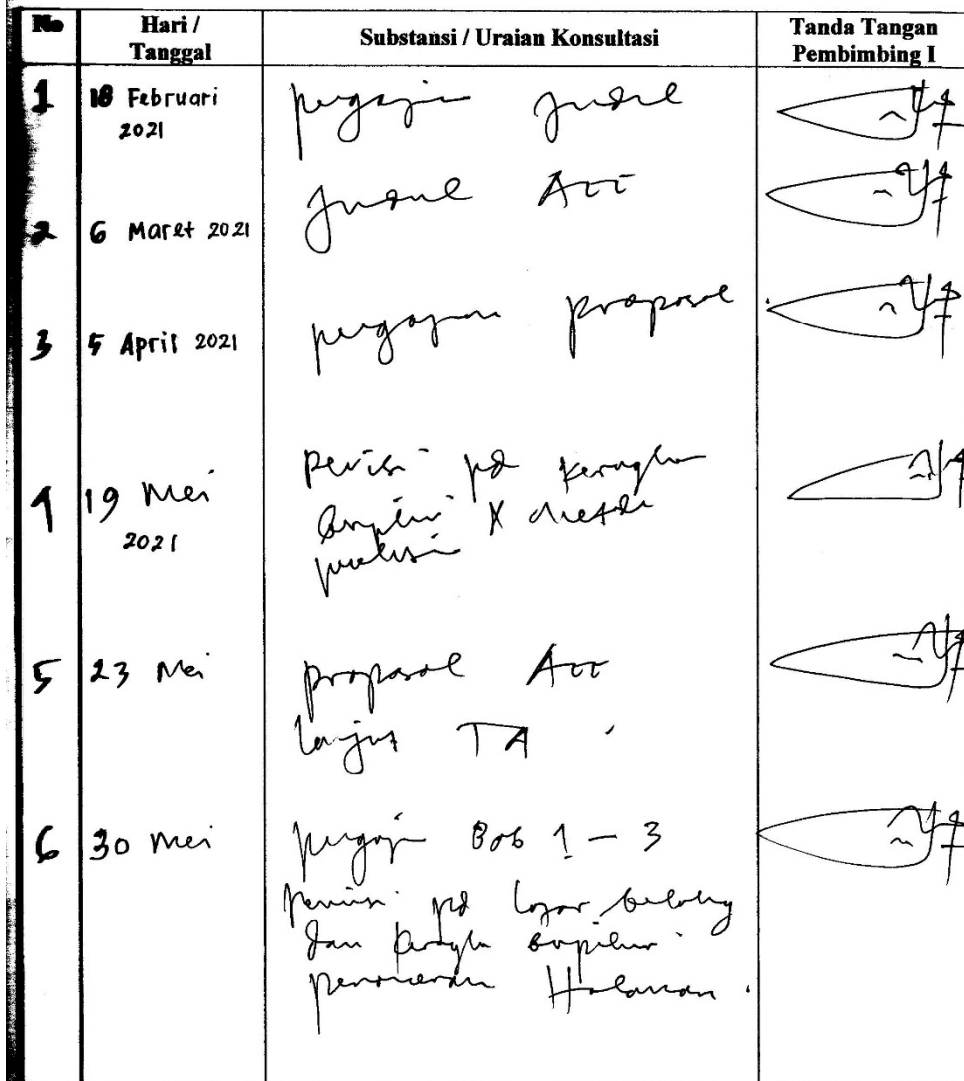 No
Hari /
Tanggal
Substansi / Uraian Konsultasi
Tanda Tangan
Pembimbing I
1
18 Februari
2021
pengajuan Judul
2
6 Maret 2021
Judul Acc
3
5 April 2021
pengajuan proposal
4
19 Mei
2021
Revisi pd kerangka
berpikir & metode
penelitian
5
23 Mei
proposal Acc
lanjut TA
6
30 Mei
pengajuan Bab 1 - 3
Revisi pd latar belakang
dan kerangka berpikir
penomoran Halaman.